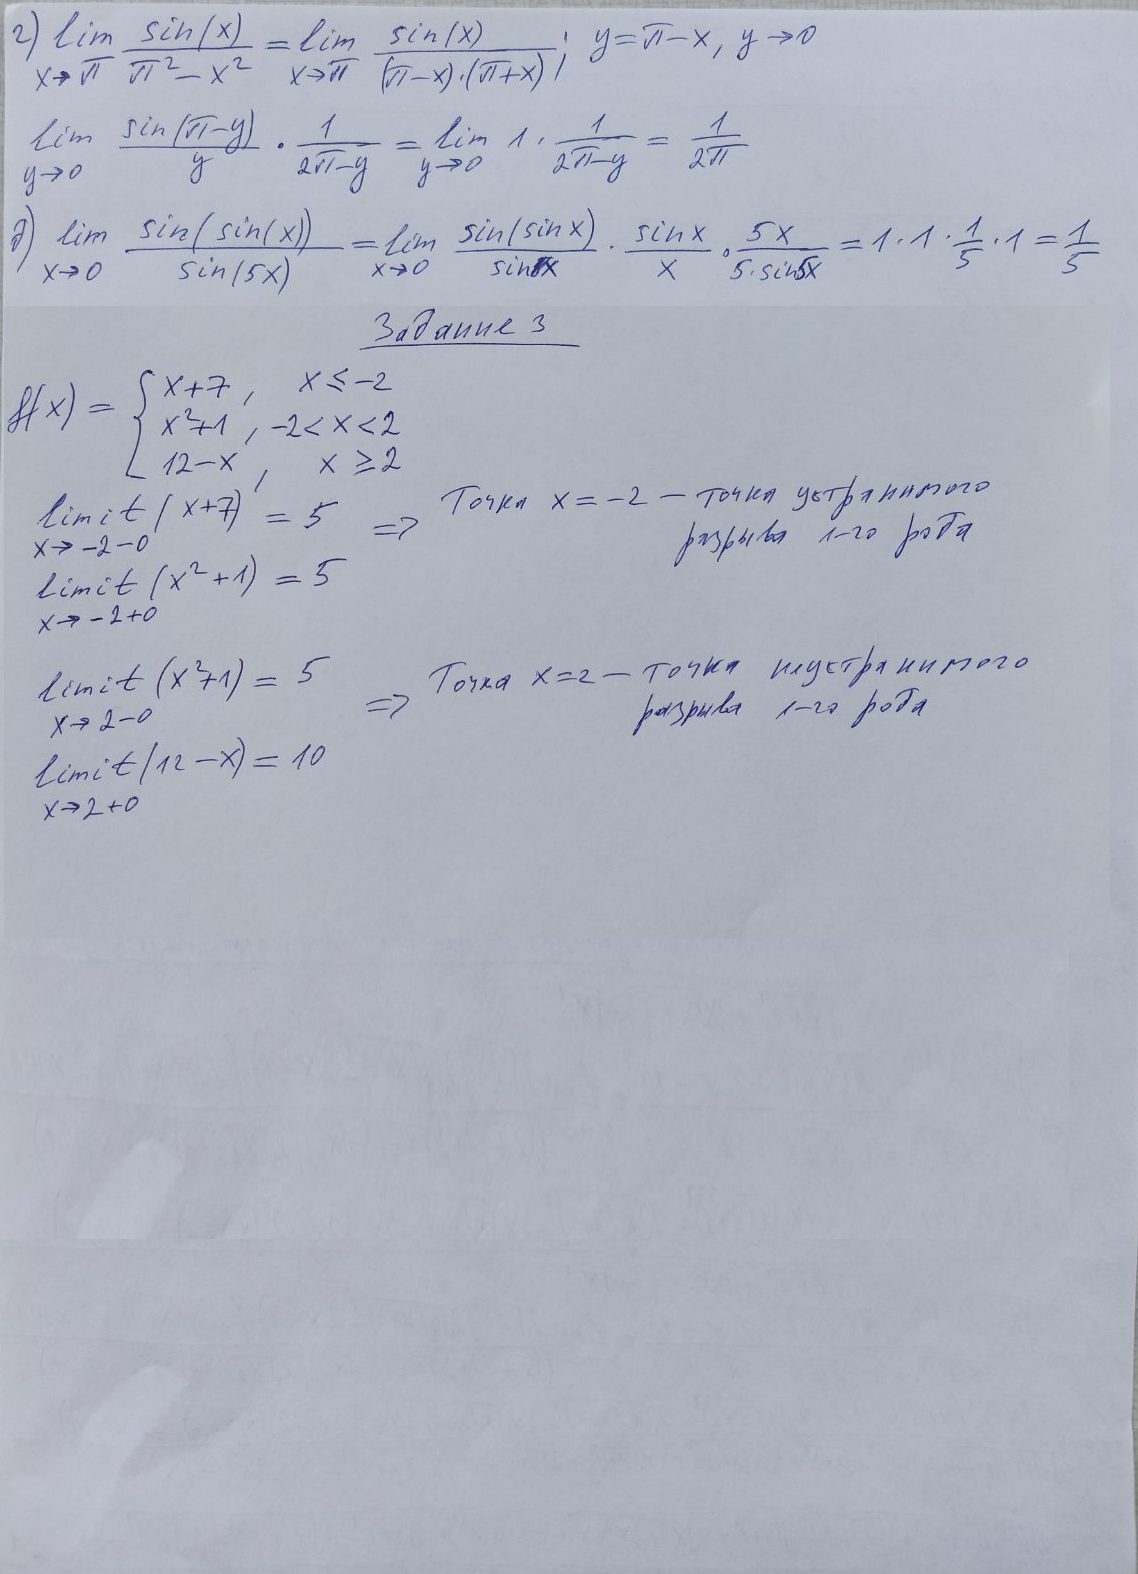 г) lim x→π sin(x)/(π² − x²) = lim x→π sin(x)/((π−x)·(π+x)); y = π−x, y→0
lim y→0 sin(π−y)/y · 1/(2π−y) = lim y→0 1 · 1/(2π−y) = 1/(2π)
д) lim x→0 sin(sin(x))/sin(5x) = lim x→0 sin(sin x)/sin x · sin x/x · 5x/(5·sin5x) = 1·1·1/5·1 = 1/5
Задание 3
f(x) = { x+7, x ≤ −2
x²+1, −2 < x < 2
12−x, x ≥ 2
limit x→−2−0 (x+7) = 5 => Точка x = −2 − точка устранимого
разрыва 1-го рода
limit x→−2+0 (x²+1) = 5
limit x→2−0 (x²+1) = 5 => Точка x=2 − точка неустранимого
разрыва 1-го рода
limit x→2+0 (12−x) = 10